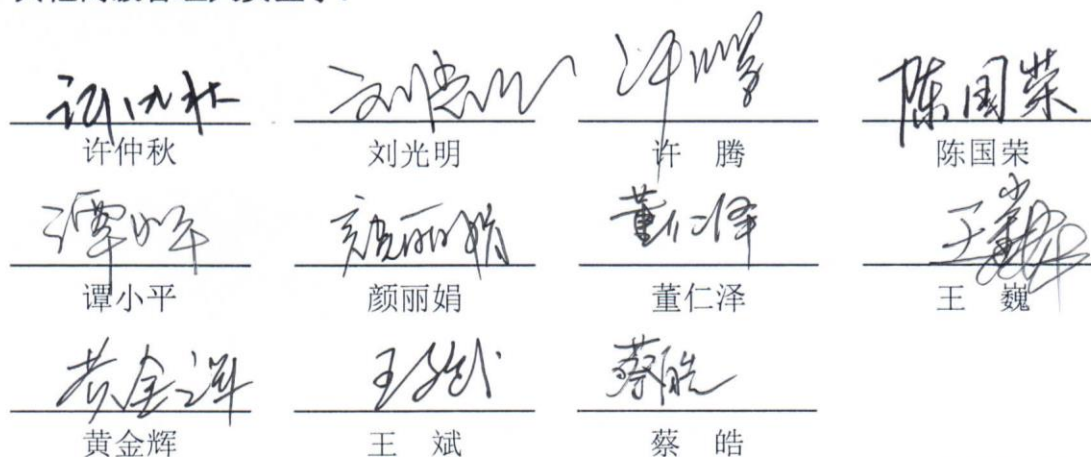 许仲秋 刘光明 许腾 陈国荣
许仲秋 刘光明 许 腾 陈国荣
谭小平 颜丽娟 董仁泽 王巍
谭小平 颜丽娟 董仁泽 王 巍
黄金辉 王斌 蔡皓
黄金辉 王 斌 蔡 皓